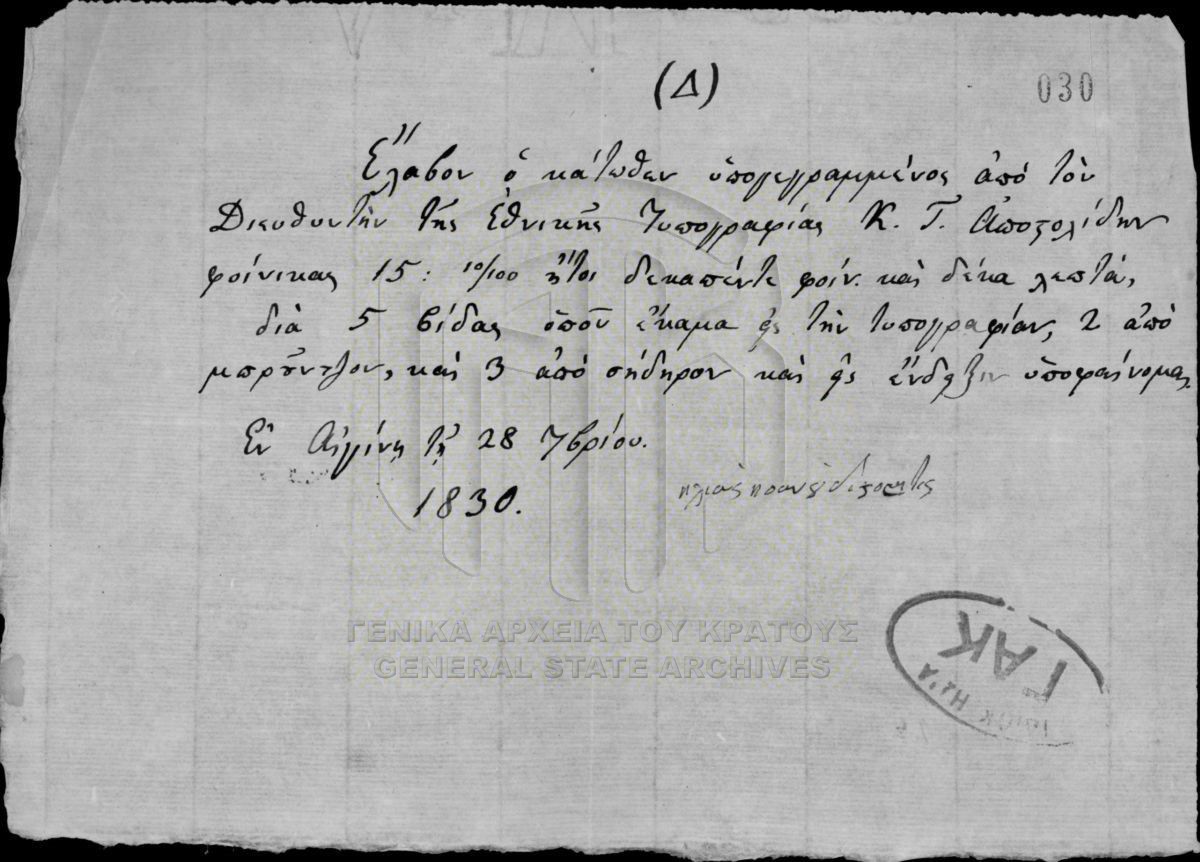 (Δ)
030
Ἔλαβον ὁ κάτωθεν ὑπογεγραμμένος ἀπὸ τὸν
Διευθυντὴν τῆς Ἐθνικῆς Τυπογραφίας Κ. Γ. Ἀποστολίδην
φοίνικας 15: 10/100 ἤτοι δεκαπέντε φοίν. καὶ δέκα λεπτά,
διὰ 5 βίδας ὁποῦ ἔκαμα εἰς τὴν τυπογραφίαν, 2 ἀπὸ
μπροῦντζον, καὶ 3 ἀπὸ σήδηρον καὶ εἰς ἔνδειξιν ὑποφαίνομαι
Ἐν Αἰγίνῃ τῇ 28 7βρίου.
1830.
ηλιας
ΓΕΝΙΚΑ ΑΡΧΕΙΑ ΤΟΥ ΚΡΑΤΟΥΣ
GENERAL STATE ARCHIVES
ΓΑΚ